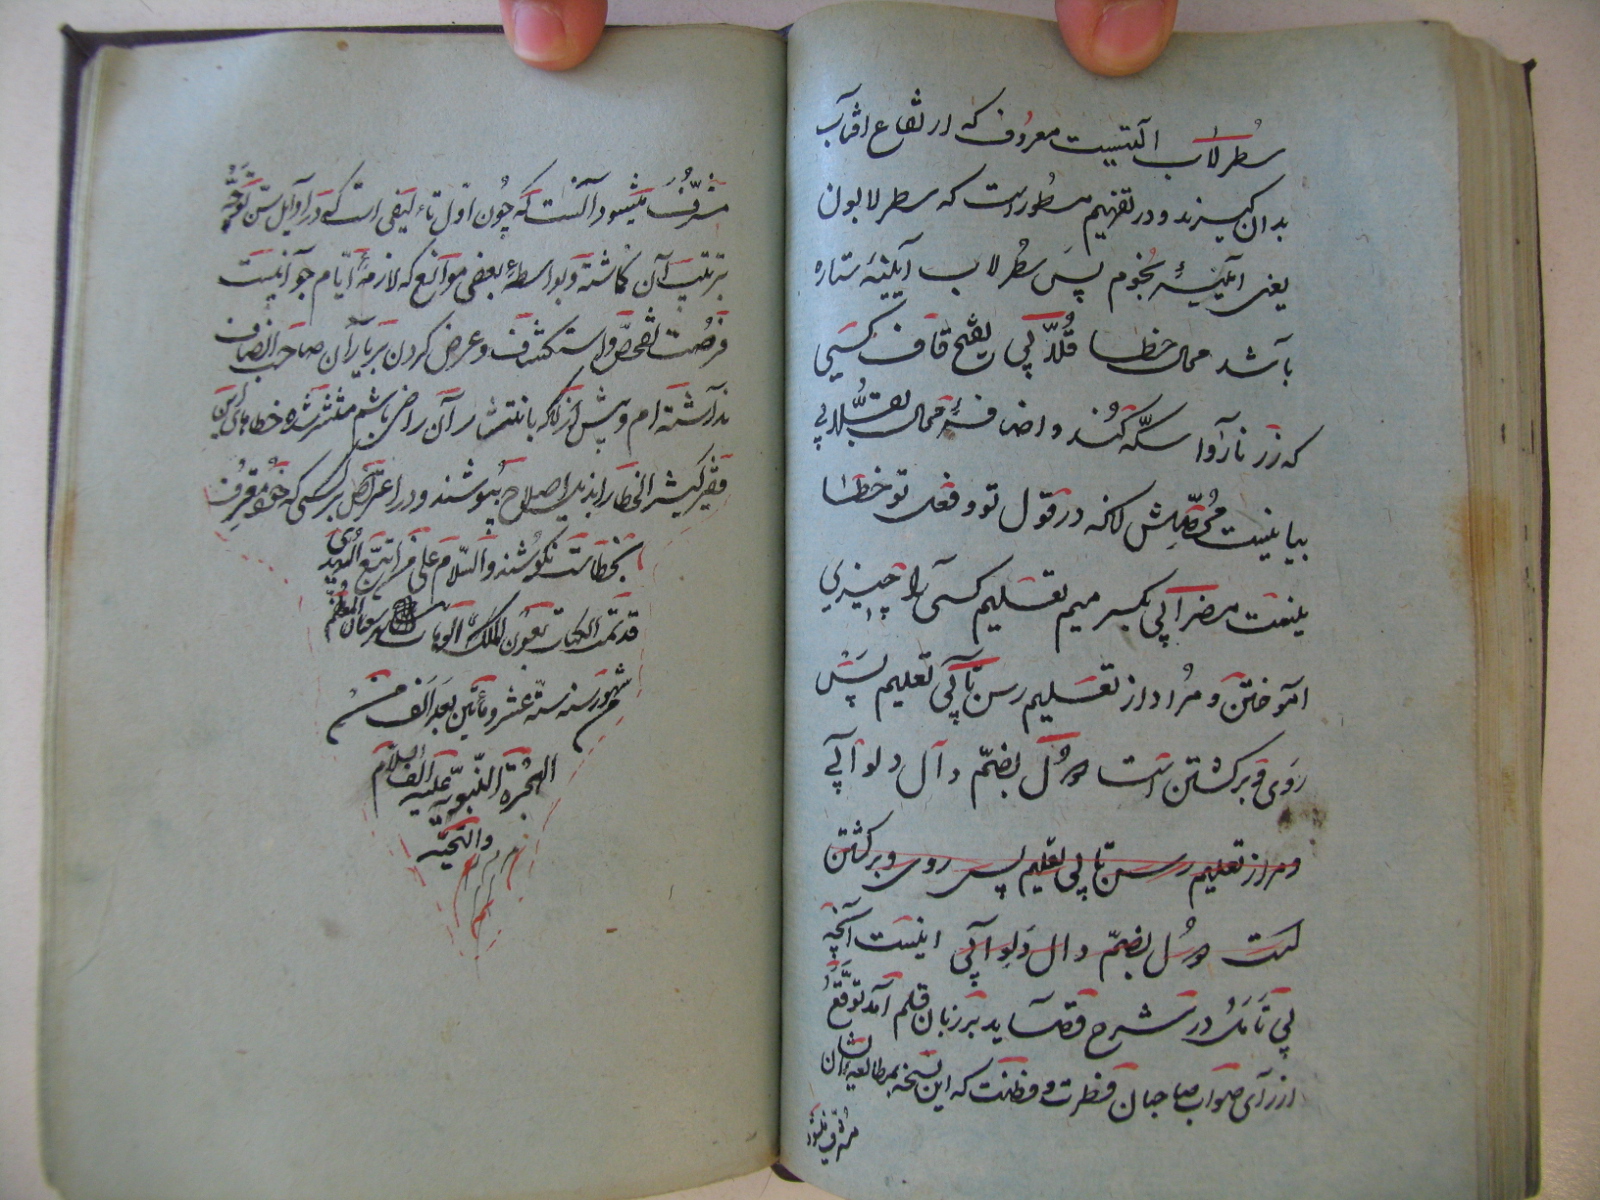 سطرلاب التیست معروف که ارتفاع افتاب
بدان گیرند و در تفهیم مسطور است که سطرلابون
یعنی آیینهٔ نجوم پس سطرلاب آیینهٔ ستاره
باشد محال خطا قلّابی بفتح قاف کسی
که زر ناروا سکّه کند و اضافهٔ محال بقلّابی
بیانیست لانه در قول تو و فعل تو خطا
نیست میم تعلیم کسی را چیزی
آموختن و مراد از تعلیم رسن تابی تعلیم پس
روی و برگشتن است دول بضمّ دال دلو آبی
و مراد از تعلیم رسن تابی تعلیم پس روی و برگشتن
است دول بضمّ دال دلو آبی اینست آنچه
بی تأمل در شرح قصاید بر زبان قلم آمد توقّع
از رأی صواب صاحبان فطرت و فطنت که این نسخه بمطالعهٔ ایشان
مشرّف میشود
مشرّف میشود آنست که چون اول تألیفی است که در اوایل سن توجّه
بترتیب آن کماشته و بواسطهٔ بعضی موانع که لازمهٔ ایام جوانیست
فرصت تفحّص و استکشاف و عرض کردن بر یاران صاحب انصاف
نداشته ام و پیش از آنکه بانتشار آن راضی باشم منتشر شده خطاهای این
فقیر کثیر الخطا را بذیل اصلاح بپوشند و در اعتراض بر کسی که خود معترف
بخطاست نکوشند والسلام علی من اتبع الهدی
قد تمت الکتاب بعون الملک الوهاب
شهور سنه ستّه عشر و مأتین بعد الف من
الهجرة النّبویّه علیه الف السلام
والتحیّه